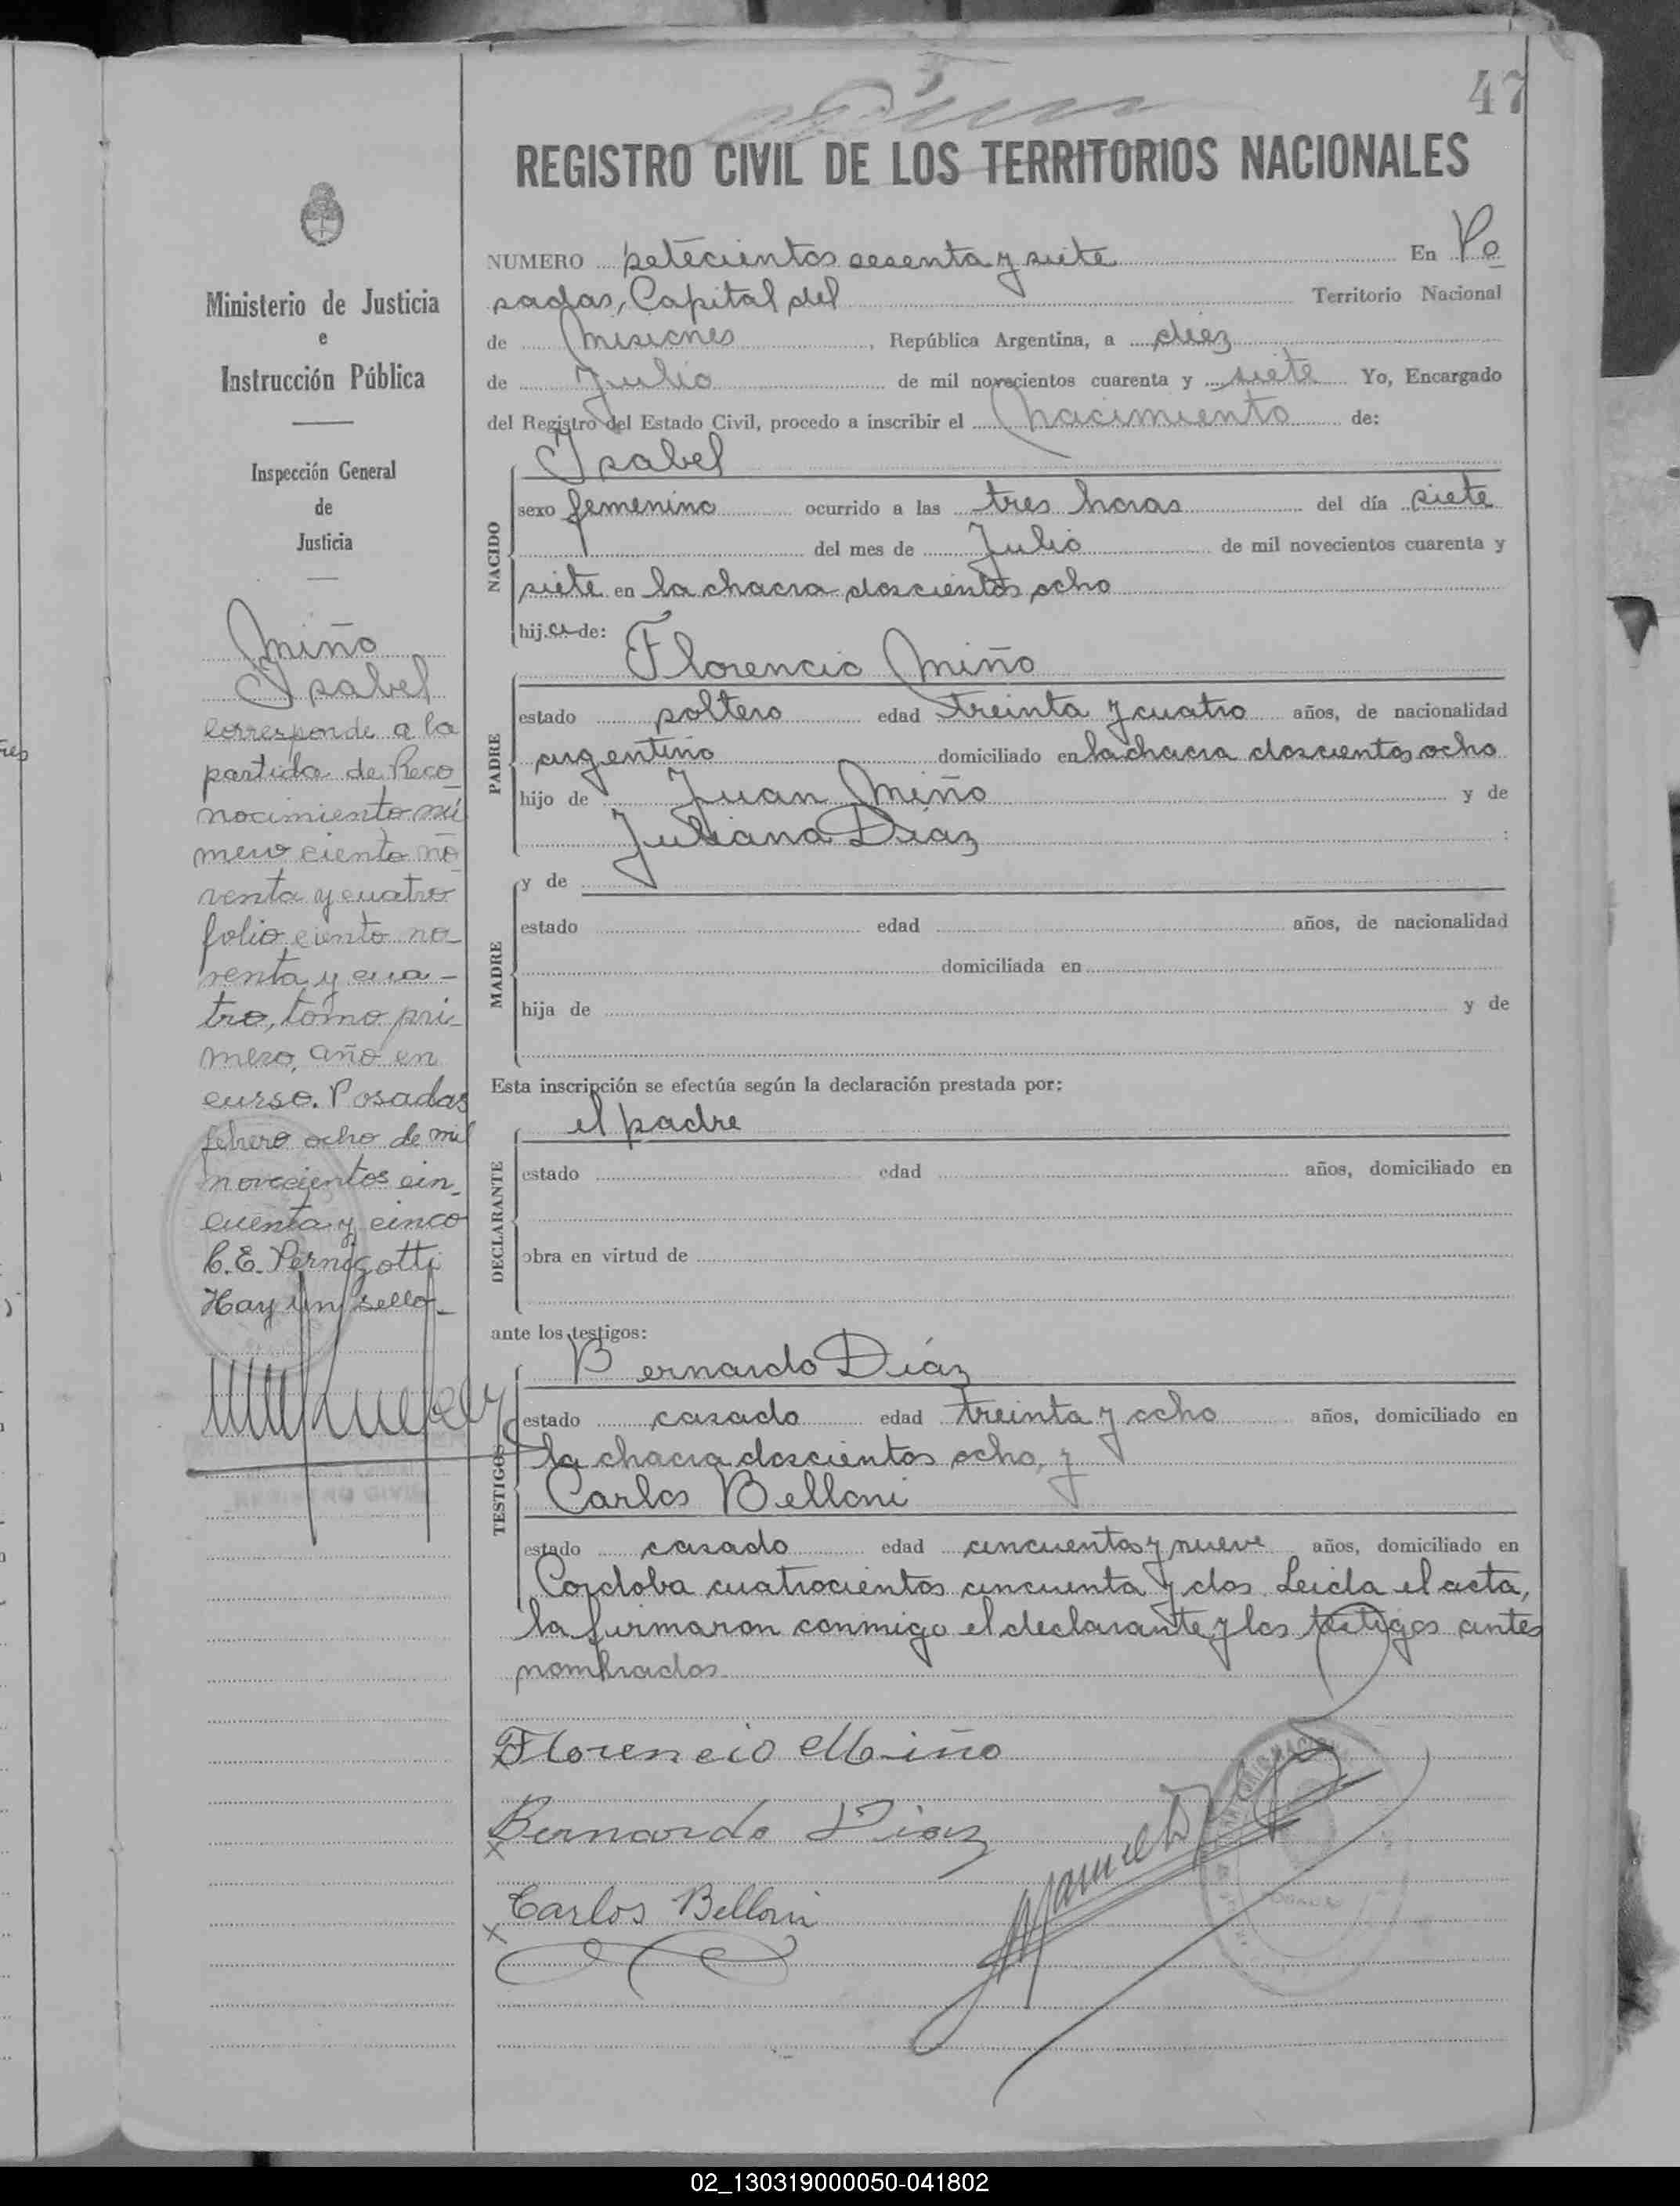 47
REGISTRO CIVIL DE LOS TERRITORIOS NACIONALES
Ministerio de Justicia
e
Instrucción Pública
Inspección General
de
Justicia
Miño
Isabel
corresponde a la
partida de Reco
nocimiento nú
mero ciento no
venta y cuatro
folio ciento no
venta y cua-
tro, tomo pri-
mero, año en
curso. Posadas
febrero ocho de mil
novecientos cin-
cuenta y cinco
C.E. Pernigotti
Hay un sello-
NUMERO setecientos sesenta y siete En Po
sadas, Capital del Territorio Nacional
de Misiones, República Argentina, a diez
de Julio de mil novecientos cuarenta y siete Yo, Encargado
del Registro del Estado Civil, procedo a inscribir el nacimiento de:
Isabel
NACIDO
sexo femenino ocurrido a las tres horas del día siete
del mes de Julio de mil novecientos cuarenta y
siete en la chacra doscientos ocho
hija de:
Florencio Miño
PADRE
estado soltero edad treinta y cuatro años, de nacionalidad
argentino domiciliado en la chacra doscientos ocho
hijo de Juan Miño y de
Juliana Díaz :
MADRE
y de
estado edad años, de nacionalidad
domiciliada en
hija de y de
Esta inscripción se efectúa según la declaración prestada por:
el padre
DECLARANTE
estado edad años, domiciliado en
obra en virtud de
ante los testigos:
Bernardo Díaz
TESTIGOS
estado casado edad treinta y ocho años, domiciliado en
la chacra doscientos ocho, y
Carlos Belloni
estado casado edad cincuenta y nueve años, domiciliado en
Cordoba cuatrocientos cincuenta y dos. Leida el acta,
la firmaron conmigo el declarante y los testigos antes
nombrados
Florencio Miño
Bernardo Diaz
Carlos Belloni
02_130319000050-041802